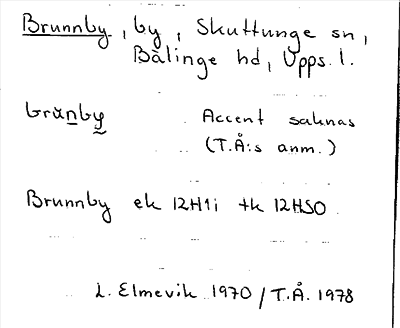 Brunnby, by, Skuttunge sn,
Bälinge hd, Upps. l.
brŭnby Accent saknas
(T.Å:s anm.)
Brunnby ek 12H1i tk 12HSO
L. Elmevik 1970 / T.Å. 1978